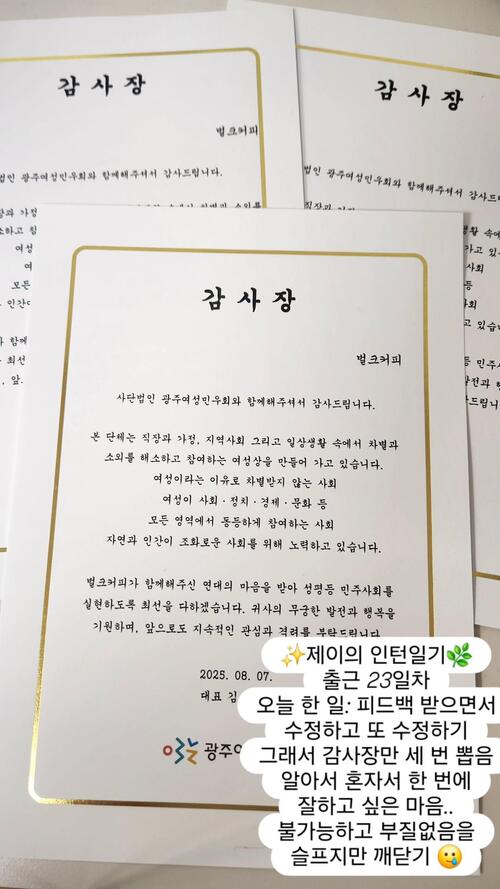 감 사 장
벌크커피
법인 광주여성민우회와 함께해주셔서 감사드립니다.
감 사 장
법인 광주여성민우회와 함께해주셔서 감사드립니
감 사 장
벌크커피
사단법인 광주여성민우회와 함께해주셔서 감사드립니다.
본 단체는 직장과 가정, 지역사회 그리고 일상생활 속에서 차별과
소외를 해소하고 참여하는 여성상을 만들어 가고 있습니다.
여성이라는 이유로 차별받지 않는 사회
여성이 사회·정치·경제·문화 등
모든 영역에서 동등하게 참여하는 사회
자연과 인간이 조화로운 사회를 위해 노력하고 있습니다.
벌크커피가 함께해주신 연대의 마음을 받아 성평등 민주사회를
실현하도록 최선을 다하겠습니다. 귀사의 무궁한 발전과 행복을
기원하며, 앞으로도 지속적인 관심과 격려를 부탁드립니다.
2025. 08. 07.
대표 김
광주여
✨제이의 인턴일기🌿
출근 23일차
오늘 한 일: 피드백 받으면서
수정하고 또 수정하기
그래서 감사장만 세 번 뽑음
알아서 혼자서 한 번에
잘하고 싶은 마음..
불가능하고 부질없음을
슬프지만 깨닫기 🥲